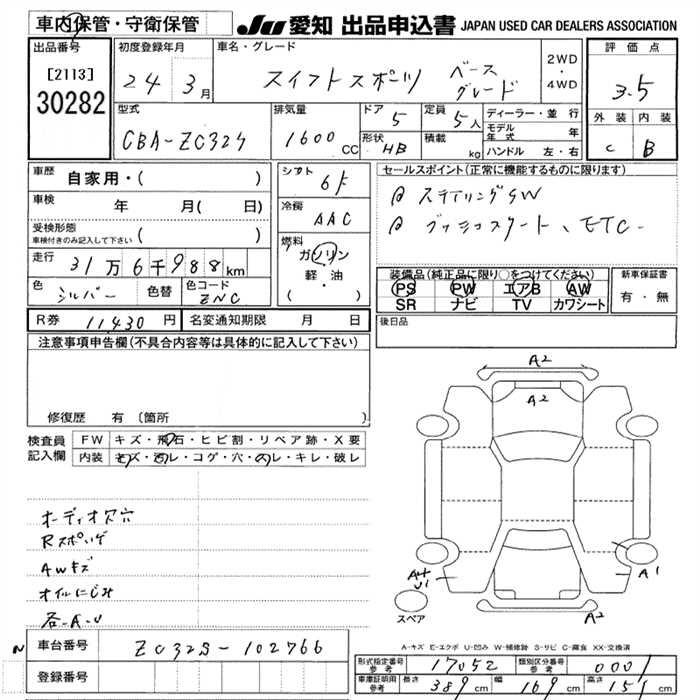 車内保管・守衛保管
JU 愛知 出品申込書 JAPAN USED CAR DEALERS ASSOCIATION
出品番号
[2113]
30282
初度登録年月
24 3月
車名・グレード
スイフトスポーツ ベースグレード
2WD
・
4WD
評価点
3.5
外装 内装
C B
型式
CBA-ZC32S
排気量
1600 CC
ドア
5
定員
5人
形状
HB
積載
kg
ディーラー・並行
モデル年式 年
ハンドル 左・右
車歴
自家用・( )
車検
年 月( 日)
受検形態
車検付きのみ記入して下さい ( )
走行
31万6千988km
色
シルバー
色替
色コード
ZNC
シフト
6F
冷房
AAC
燃料
ガソリン
軽・油
( ・ )
セールスポイント(正常に機能するものに限ります)
ステアリングSW
プッシュスタート、ETC
装備品(純正品に限り○をつけてください)
PS PW エアB AW
SR ナビ TV カワシート
新車保証書
有・無
R券 11430円
名変通知期限 月 日
後日品
注意事項申告欄(不具合内容等は具体的に記入して下さい)
修復歴 有〔箇所 〕
検査員記入欄
FW キズ・飛石・ヒビ割・リペア跡・X要
内装 キズ・汚レ・コゲ・穴・ノレ・キレ・破レ
オーディオ穴
Rスポイラ
AWキズ
オイルにじみ
各-A-U
A2
A2
A1
A2
スペア
A-キズ E-エクボ U-凹み W-補修跡 S-サビ C-腐食 XX-交換済
車台番号 ZC32S-102766
登録番号
形式指定番号 参考 17052
類別区分番号 参考 0001
車庫証明用 参考 長さ 389cm 幅 169cm 高さ 151cm